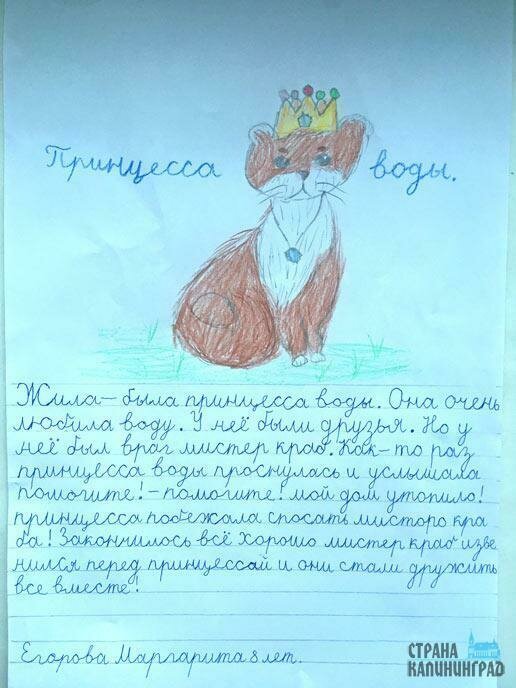 Принцесса воды.
Жила-была принцесса воды. Она очень
любила воду. У неё были друзья. Но у
неё был враг мистер краб. Как-то раз
принцесса воды проснулась и услышала
помогите!-помогите! мой дом утопило!
принцесса побежала спосать мисторо кра
ба! Закончилось всё хорошо мистер краб изве
нился перед принцессай и они стали дружить
все вместе!
Егорова Маргарита 8 лет.
СТРАНА
КАЛИНИНГРАД